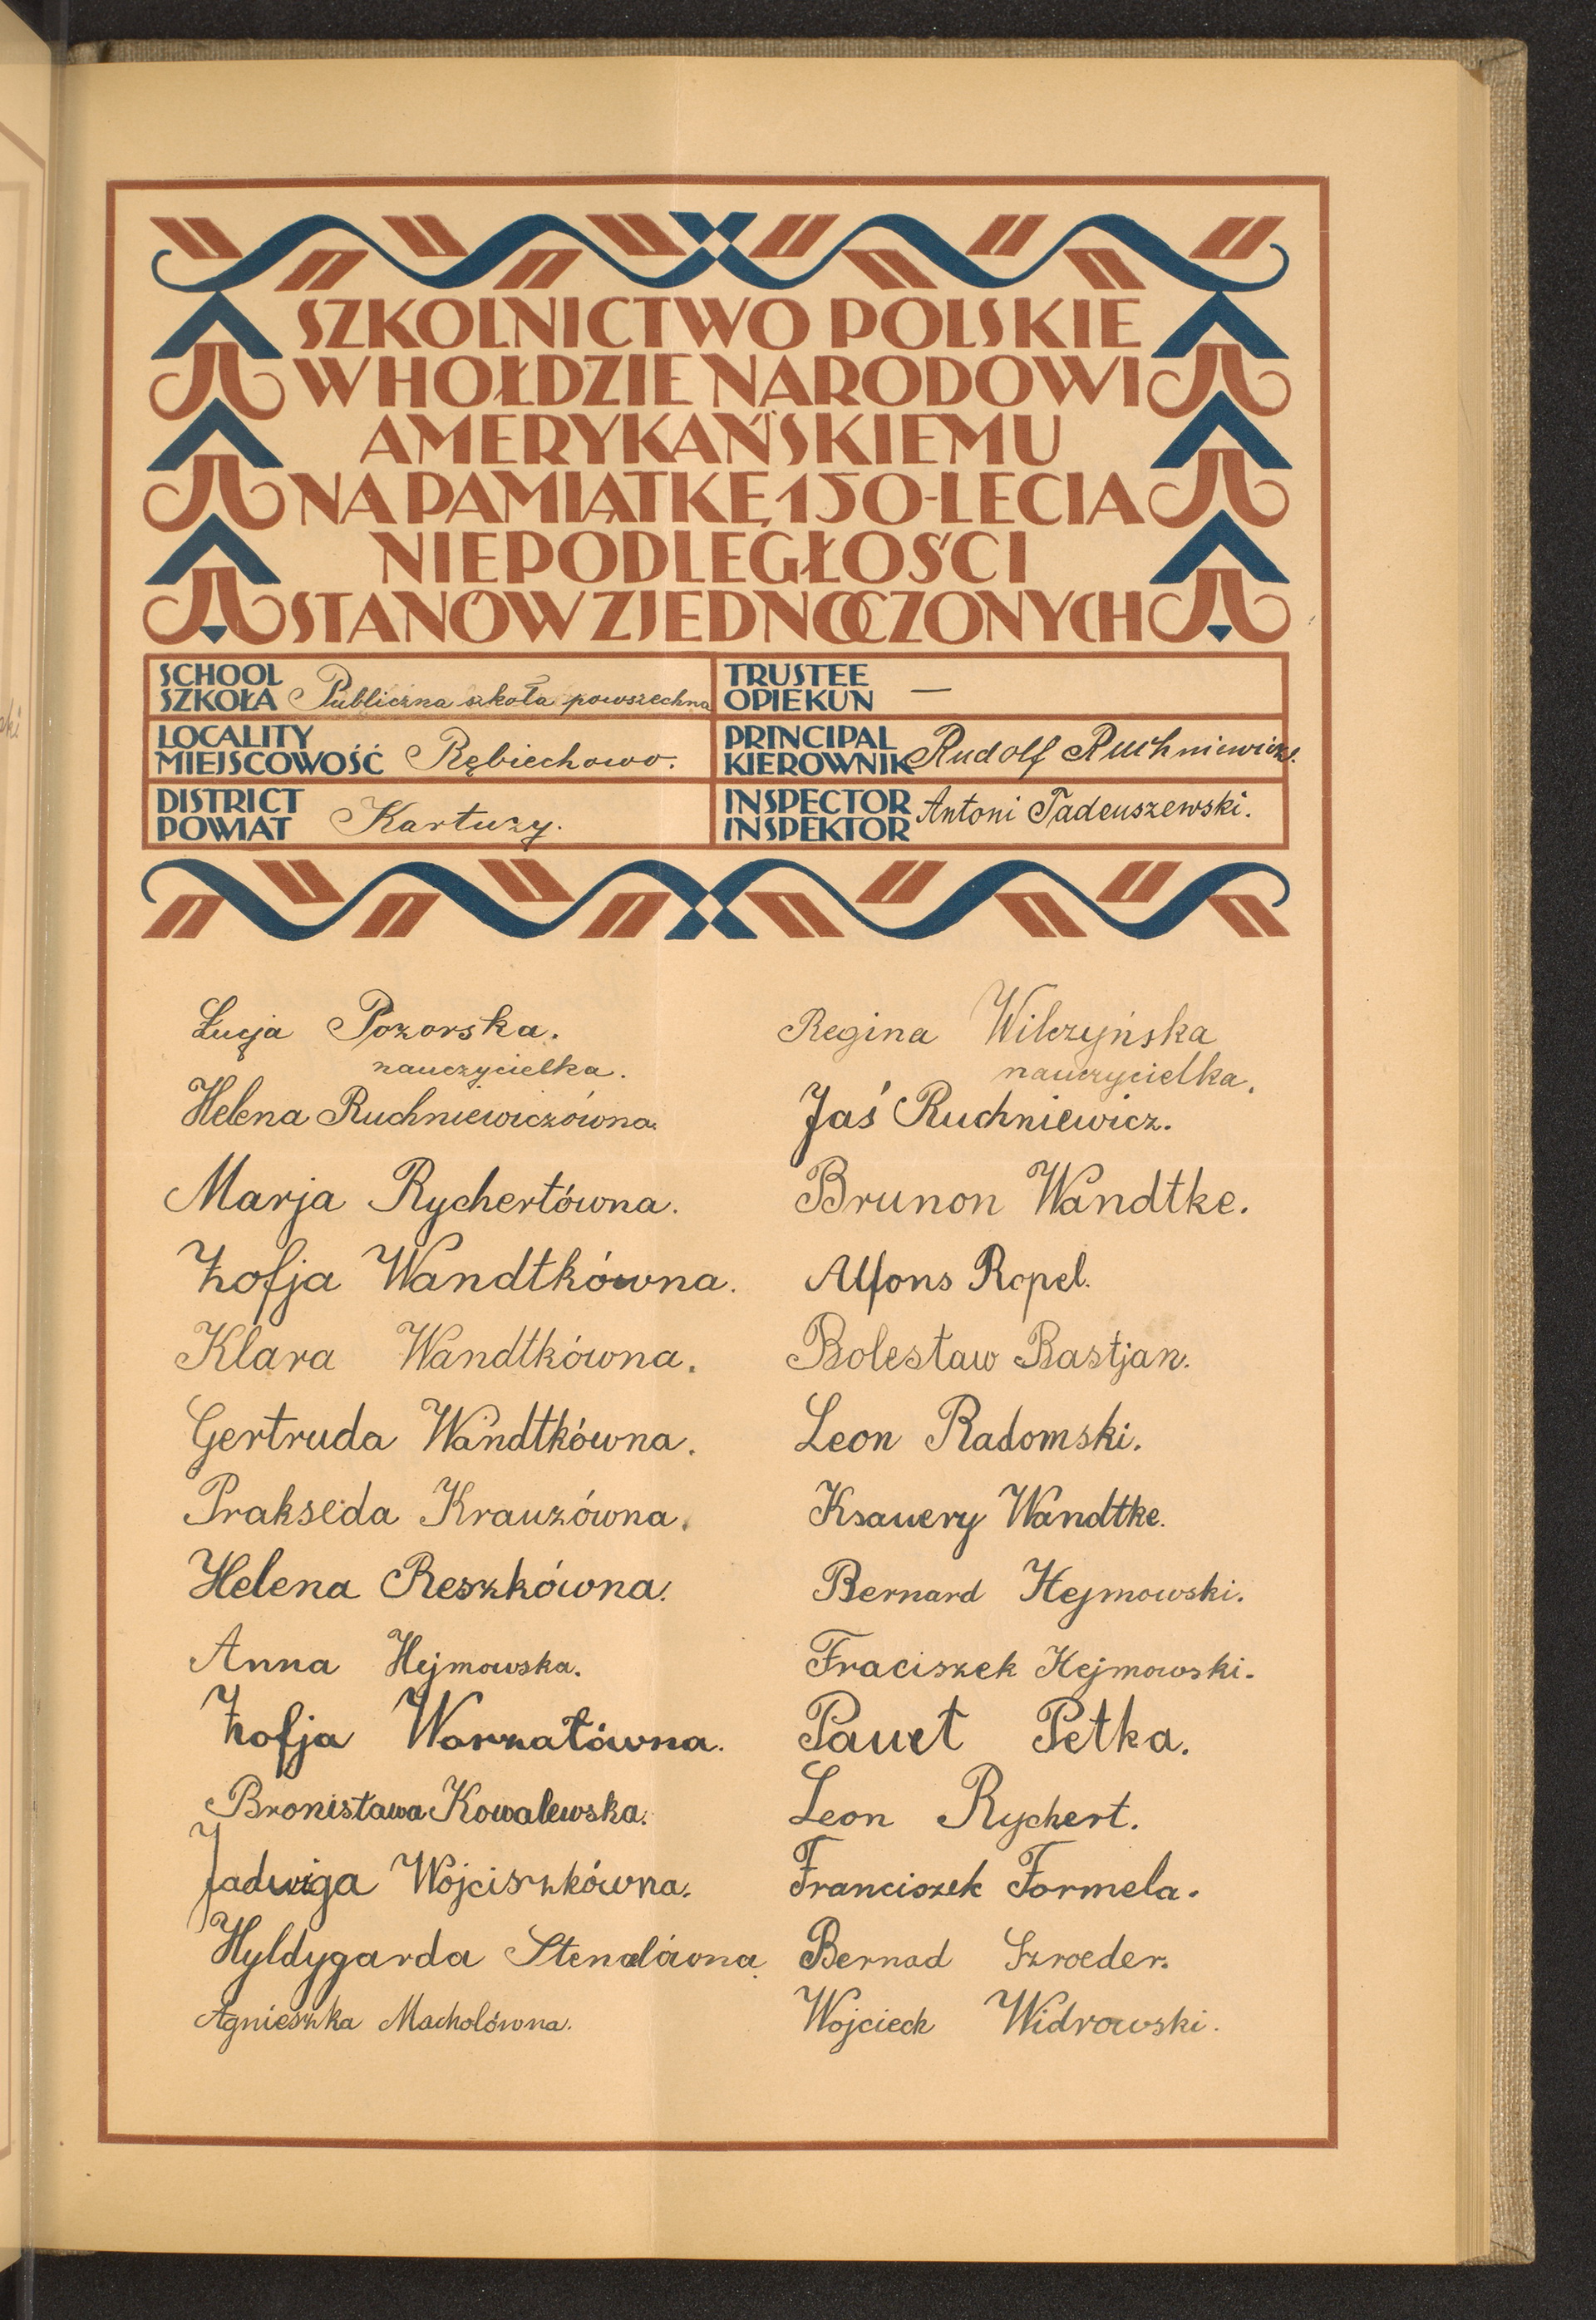 SZKOLNICTWO POLSKIE
W HOŁDZIE NARODOWI
AMERYKAŃSKIEMU
NA PAMIĄTKĘ 150-LECIA
NIEPODLEGŁOŚCI
STANÓW ZJEDNOCZONYCH
SCHOOL
SZKOŁA Publiczna szkoła powszechna
TRUSTEE
OPIEKUN —
LOCALITY
MIEJSCOWOŚĆ Rębiechowo.
PRINCIPAL
KIEROWNIK Rudolf Ruchniewicz.
DISTRICT
POWIAT Kartuzy.
INSPECTOR
INSPEKTOR Antoni Tadeuszewski.
Łucja Pozorska.
nauczycielka.
Helena Ruchniewiczówna.
Marja Rychertówna.
Zofja Wandtkówna.
Klara Wandtkówna.
Gertruda Wandtkówna.
Prakseda Krauzówna.
Helena Reszkówna.
Anna Hejmowska.
Zofja Worzałówna.
Bronisława Kowalewska.
Jadwiga Wojciszkówna.
Hyldygarda Stencelówna.
Agnieszka Macholówna.
Regina Wilczyńska
nauczycielka.
Jaś Ruchniewicz.
Brunon Wandtke.
Alfons Ropel.
Bolesław Bastjan.
Leon Radomski.
Ksawery Wandtke.
Bernard Hejmowski.
Fraciszek Hejmowski.
Paweł Petka.
Leon Rychert.
Franciszek Formela.
Bernad Szroeder.
Wojciech Widrowski.